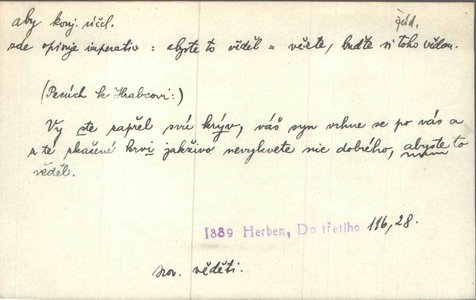 aby konj. účel.
zde opisuje imperativ : abyste to věděl = vězte, buďte si toho vědom.
(Pecúch k Hrabcovi:)
Vy ste zapřel svú krýv, váš syn vrhne se po vás a
z té zkažené krvi jakživo nevykvete nic dobrého, abyste to
věděl.
1889 Herben, Do třetího 116,28.
srov. věděti.